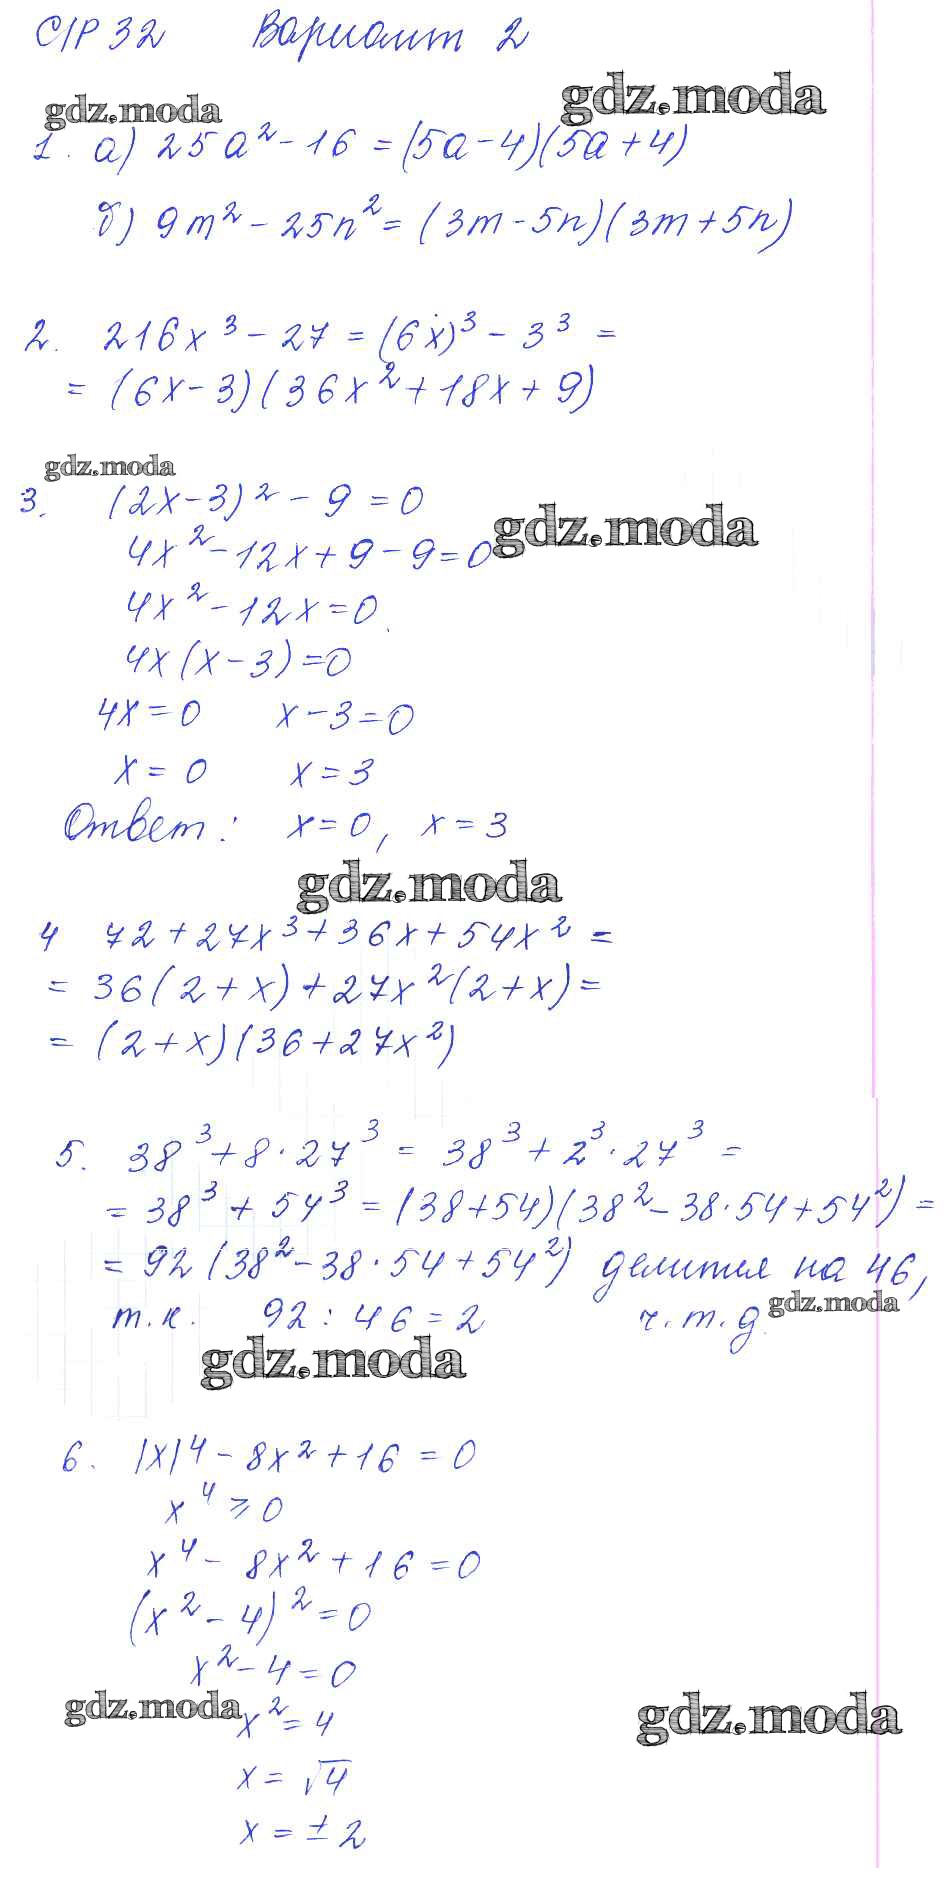 С/Р 32 Вариант 2
gdz.moda gdz.moda
1. а) 25a² - 16 = (5a - 4)(5a + 4)
б) 9m² - 25n² = (3m - 5n)(3m + 5n)
2. 216x³ - 27 = (6x)³ - 3³ =
= (6x - 3)(36x² + 18x + 9)
gdz.moda
3. (2x - 3)² - 9 = 0
gdz.moda
4x² - 12x + 9 - 9 = 0
4x² - 12x = 0
4x(x - 3) = 0
4x = 0 x - 3 = 0
x = 0 x = 3
Ответ: x = 0, x = 3
gdz.moda
4 72 + 27x³ + 36x + 54x² =
= 36(2 + x) + 27x²(2 + x) =
= (2 + x)(36 + 27x²)
5. 38³ + 8 · 27³ = 38³ + 2³ · 27³ =
= 38³ + 54³ = (38 + 54)(38² - 38 · 54 + 54²) =
= 92(38² - 38 · 54 + 54²) делится на 46,
gdz.moda
т.к. 92 : 46 = 2 ч.т.д.
gdz.moda
6. |x|⁴ - 8x² + 16 = 0
x⁴ ⩾ 0
x⁴ - 8x² + 16 = 0
(x² - 4)² = 0
x² - 4 = 0
gdz.moda gdz.moda
x² = 4
x = √4
x = ± 2